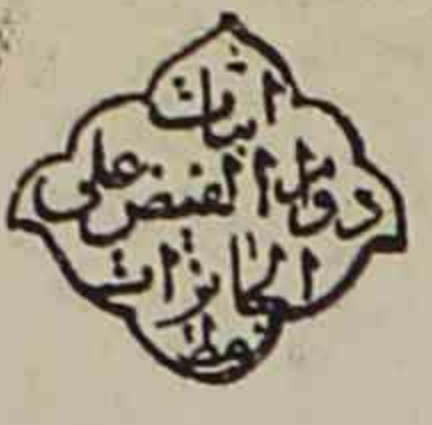 اثبات
دوام الفيض على
الجائزات
مط